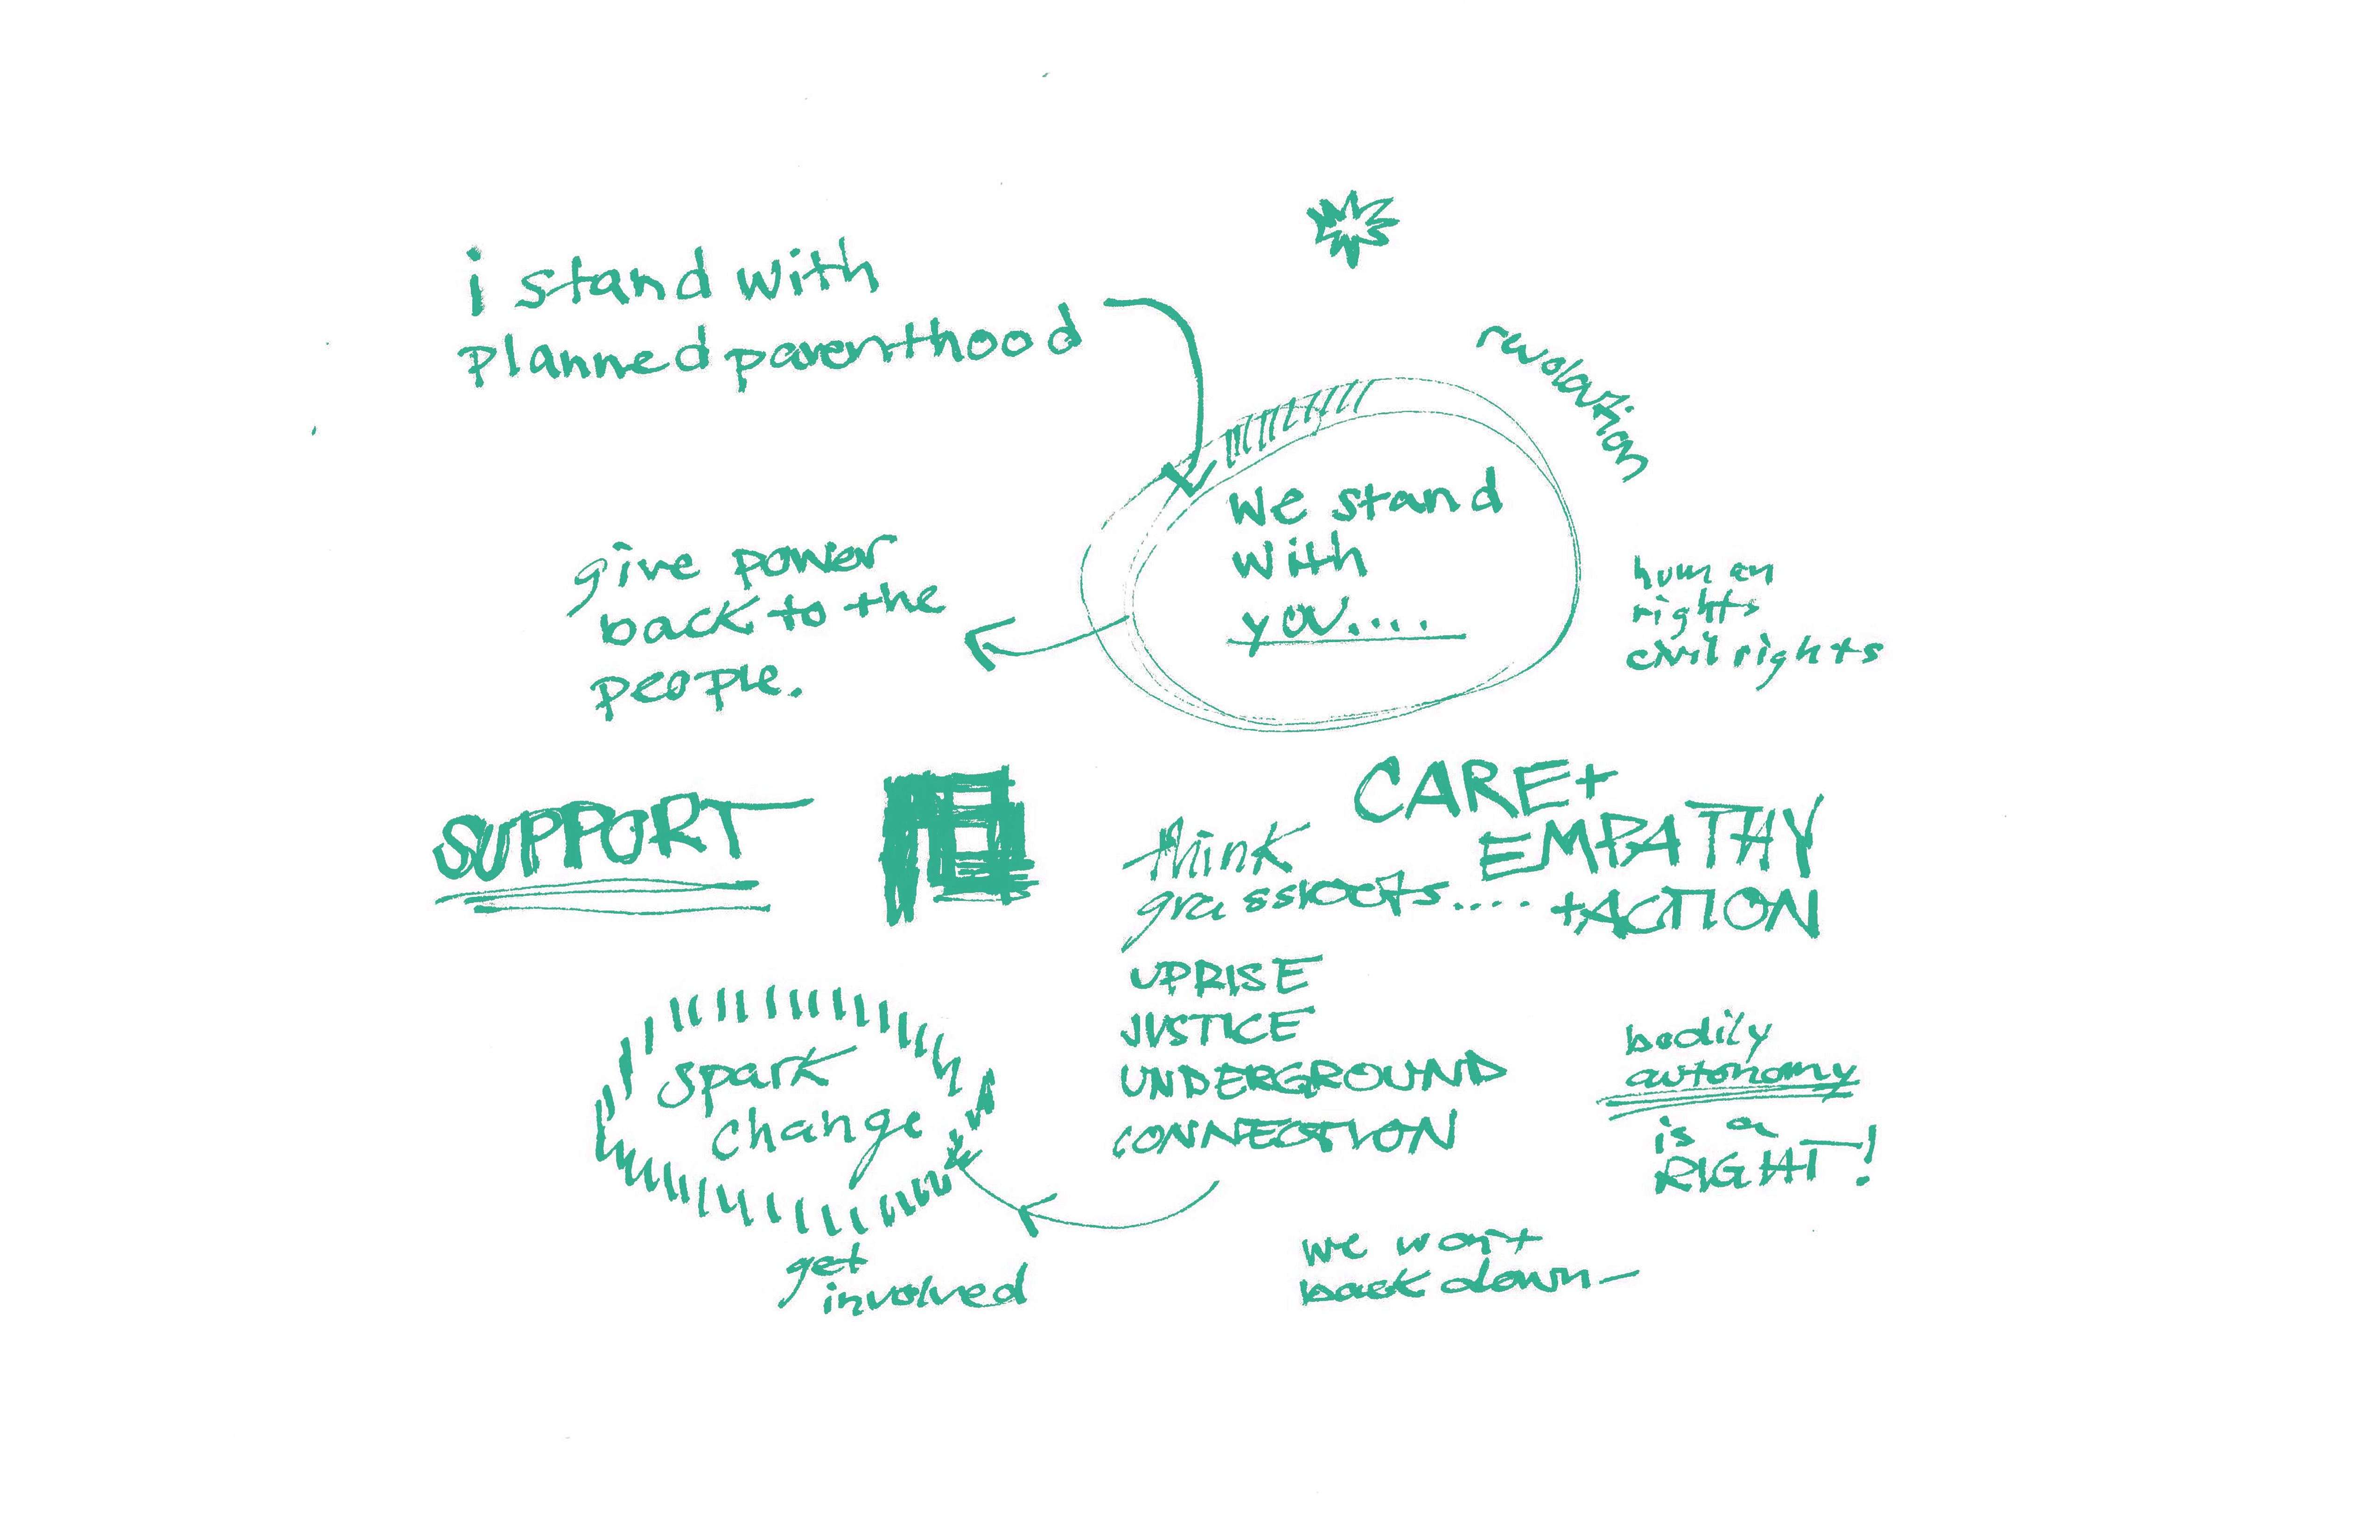 i stand with
planned parenthood
revolution
we stand
with
you....
give power
back to the
people.
human
rights
civil rights
SUPPORT
CARE+
EMPATHY
+ACTION
think
grassroots....
UPRISE
JUSTICE
UNDERGROUND
CONNECTION
spark
change
bodily
autonomy
is a
RIGHT!
get
involved
we won't
back down—